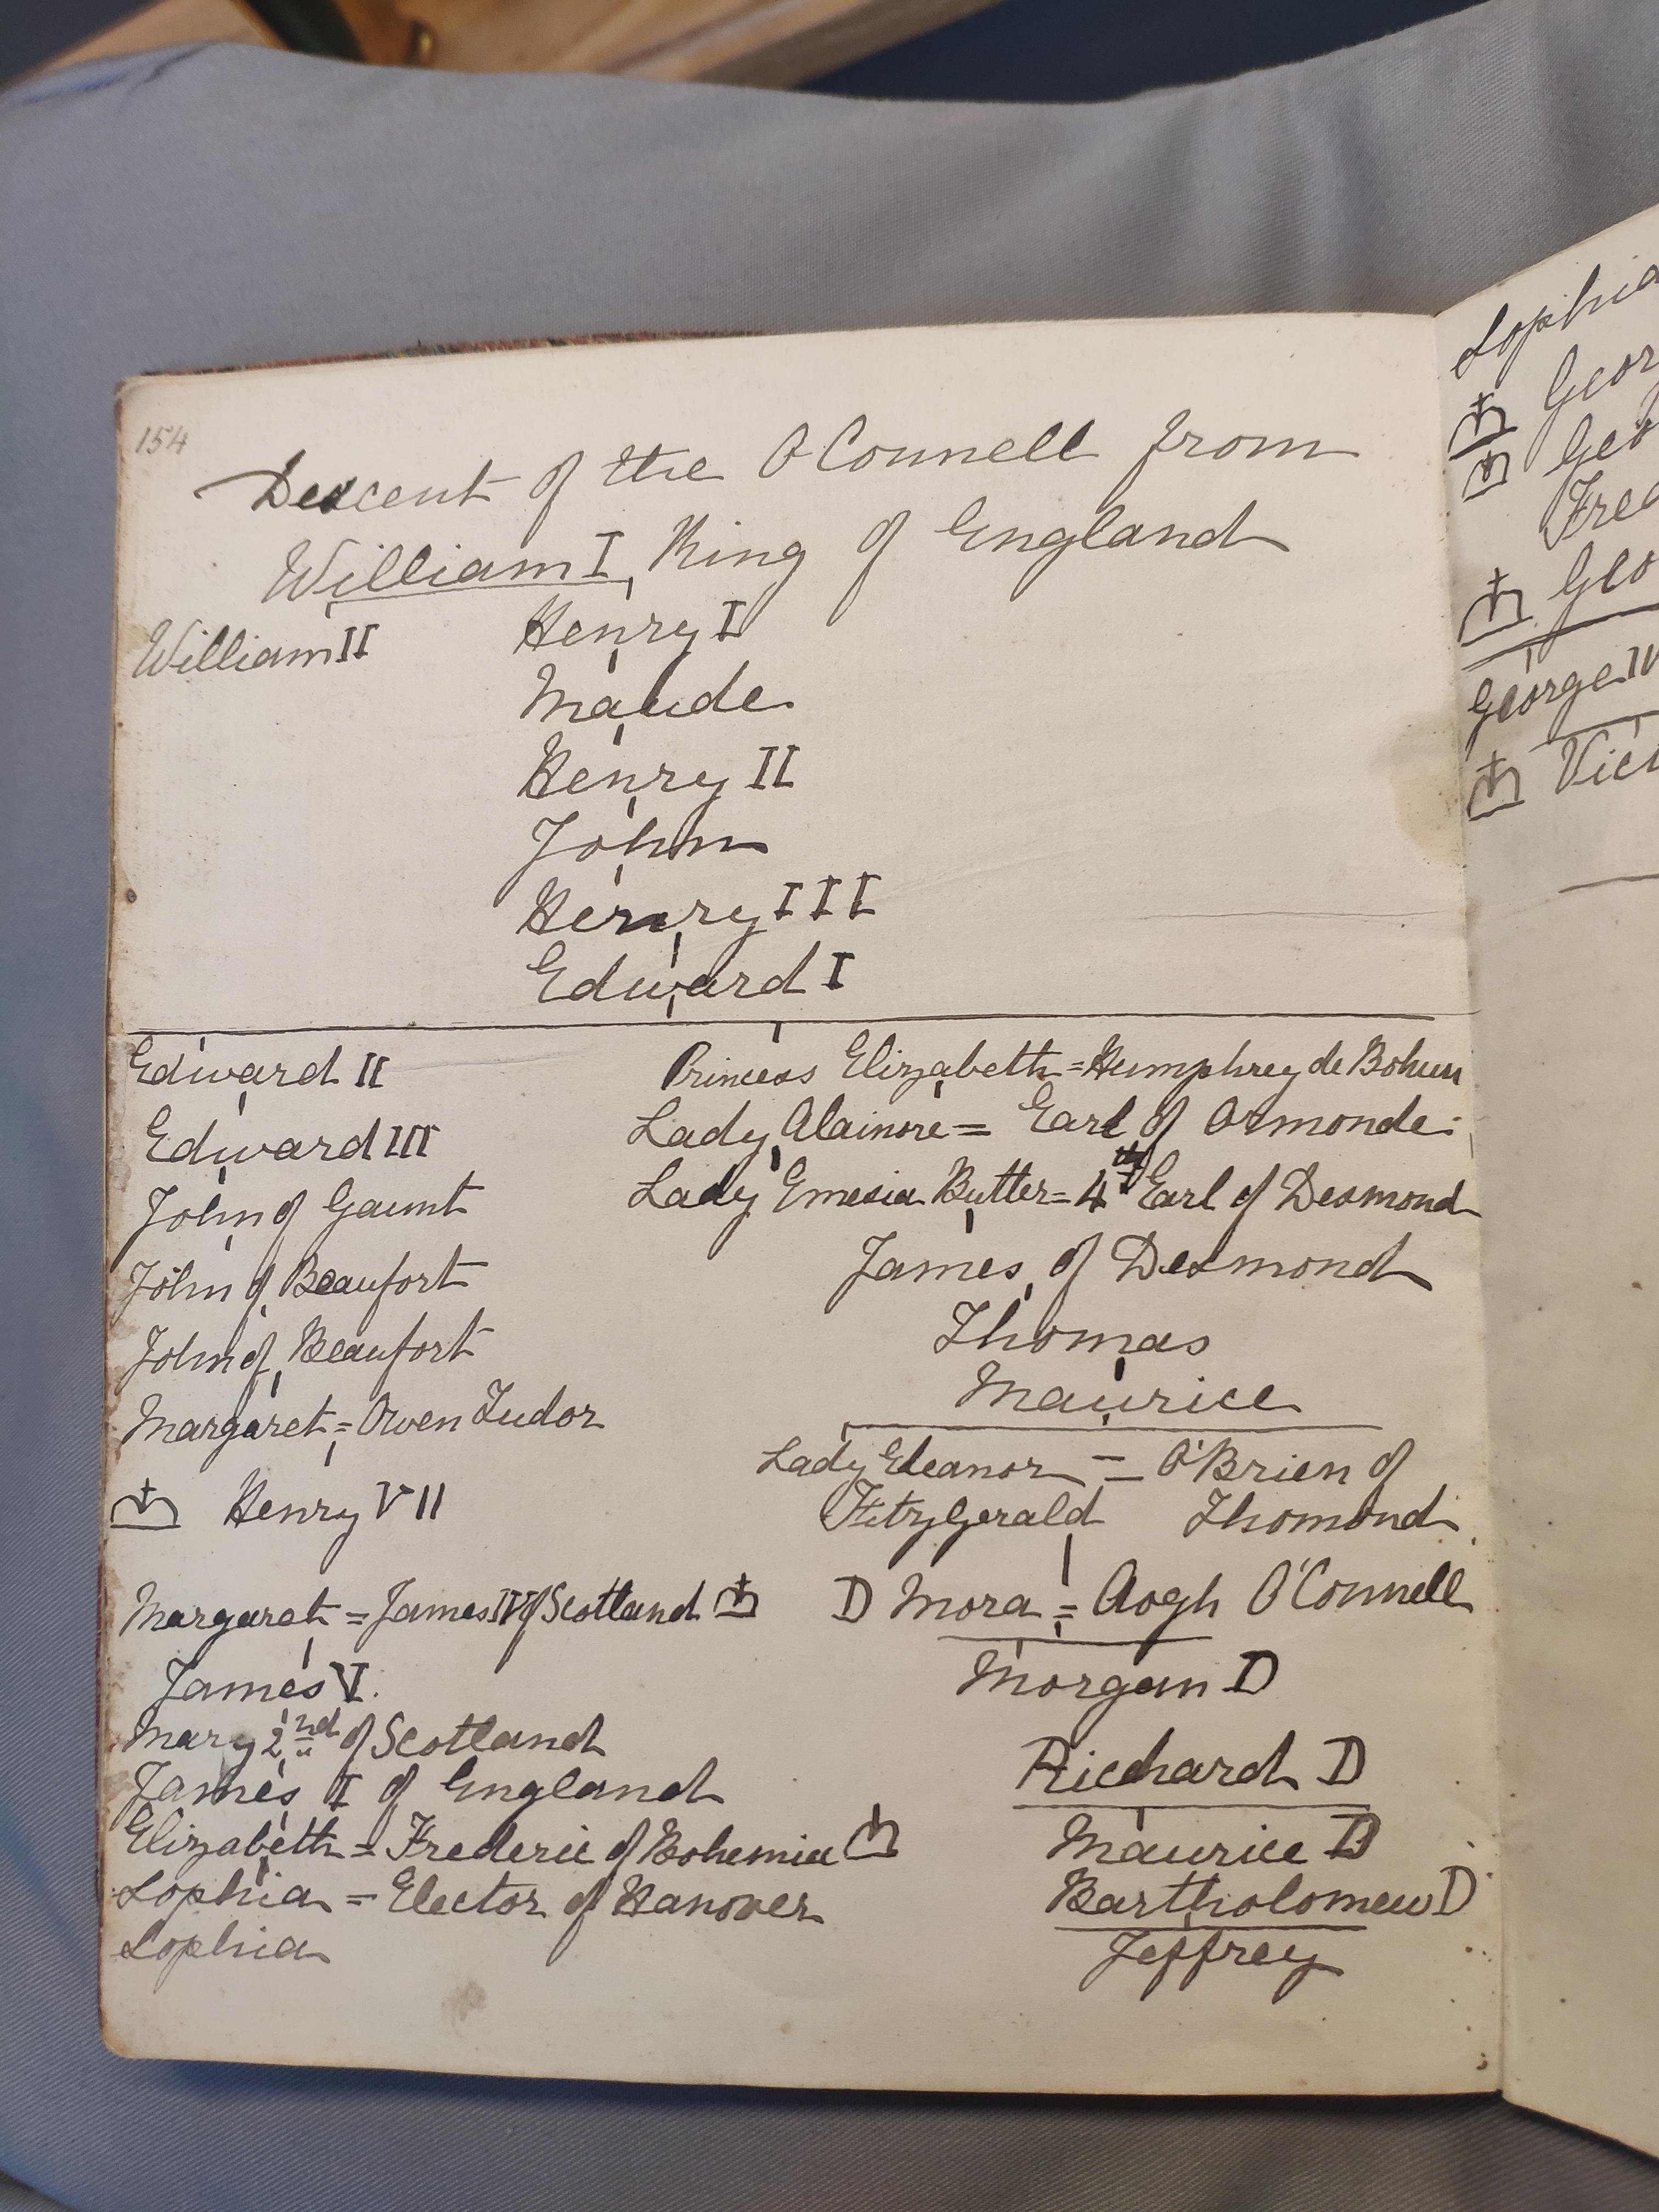 154
Descent of the O Connell from
William I, King of England
William II Henry I
Maude
Henry II
John
Henry III
Edward I
Edward II
Edward III
John of Gaunt
John of Beaufort
John of Beaufort
Margaret = Owen Tudor
Henry VII
Margaret = James IV of Scotland
James V.
Mary 2nd of Scotland
James I of England
Elizabeth = Frederic of Bohemia
Sophia = Elector of Hanover
Sophia
Princess Elizabeth = Humphrey de Bohun
Lady Alainore = Earl of Ormonde
Lady Emesia Butler = 4th Earl of Desmond
James of Desmond
Thomas
Maurice
Lady Eleanor = O'Brien of
FitzGerald Thomond
D Mora = Aogh O'Connell
Morgan D
Richard D
Maurice D
Bartholomew D
Jeffrey
Sophia
George IV